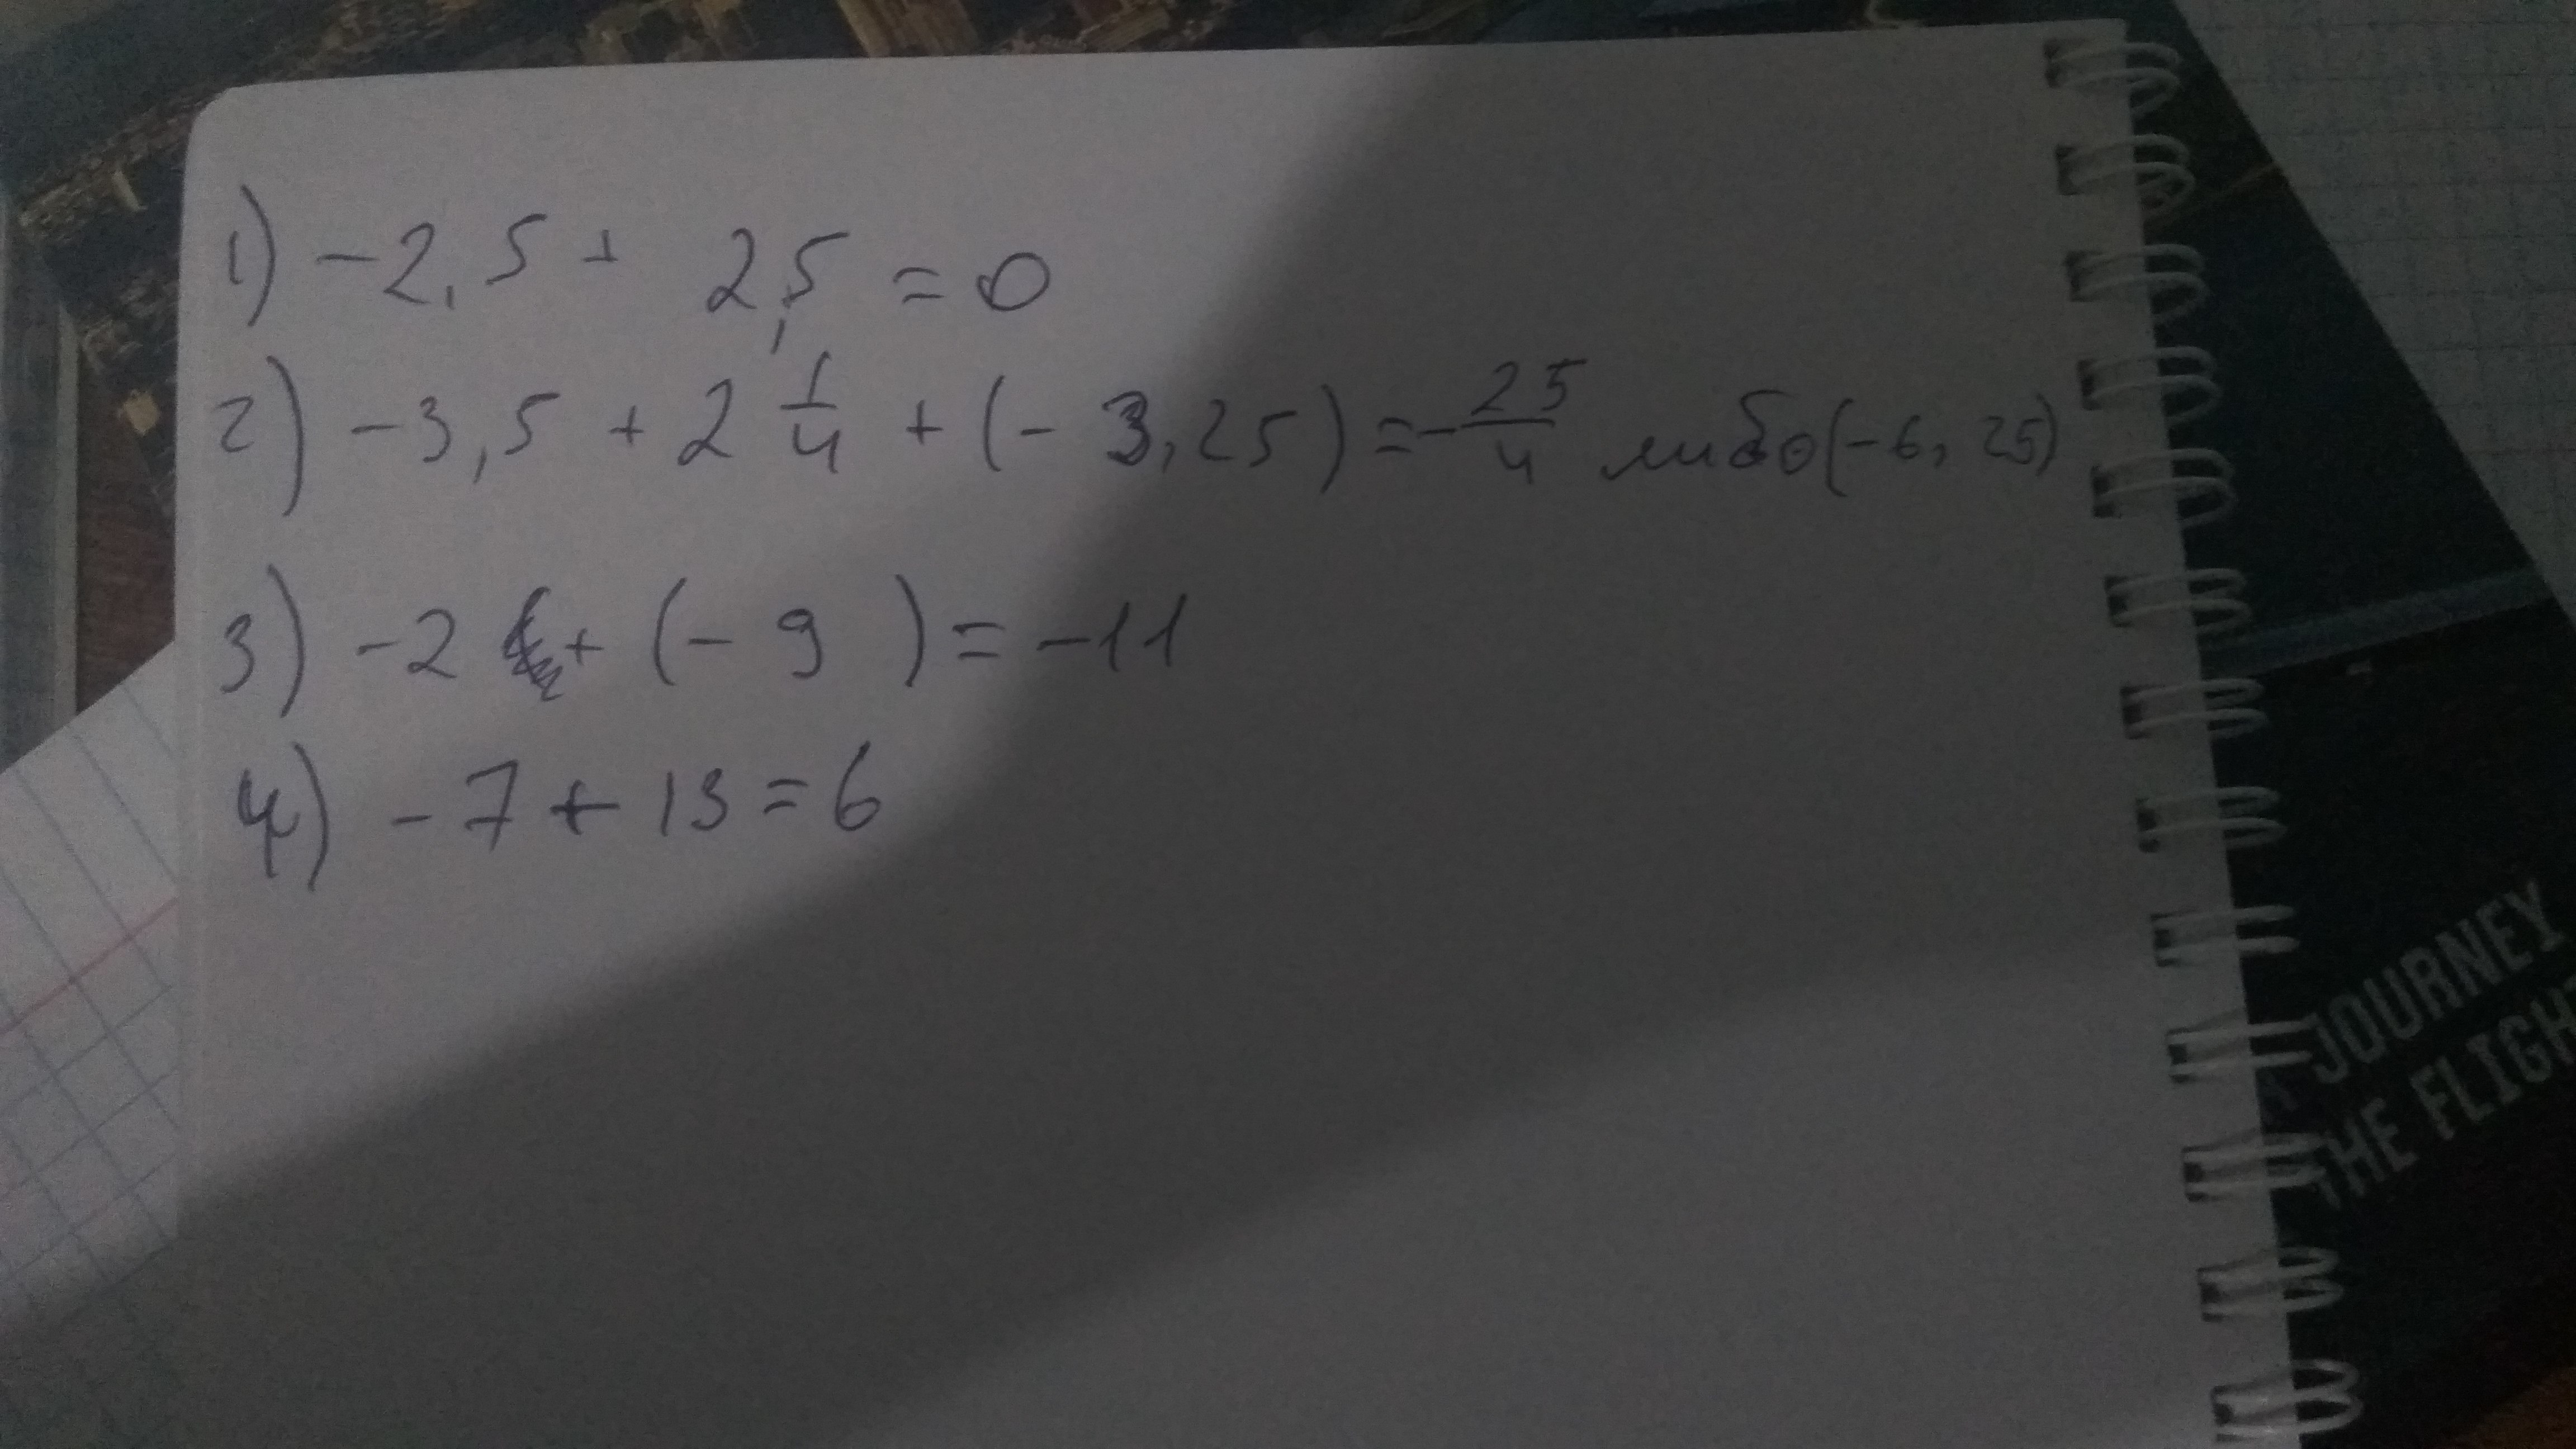 1) -2,5 + 2,5 = 0
2) -3,5 + 2 1/4 + (-3,25) = -25/4 либо (-6,25)
3) -2 + (-9) = -11
4) -7 + 13 = 6
JOURNEY
THE FLIGHT